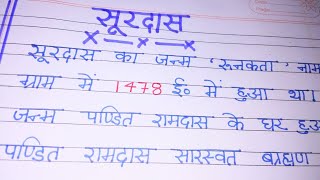 सूरदास
सूरदास का जन्म 'रुनकता' नाम
ग्राम में 1478 ई० में हुआ था।
जन्म पण्डित रामदास के घर हुआ
पण्डित रामदास सारस्वत ब्रह्मण